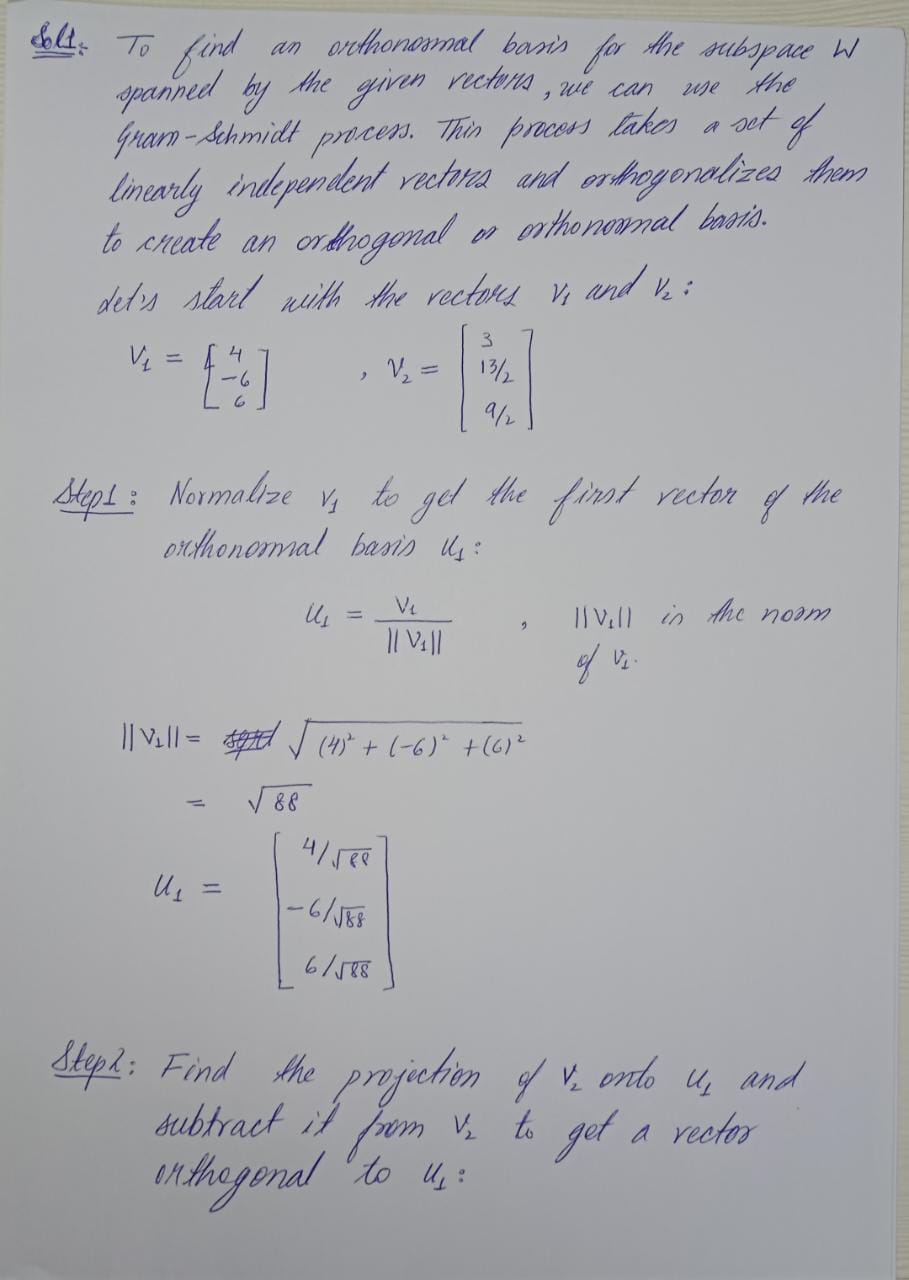 Sol1: To find an orthonormal basis for the subspace W
spanned by the given vectors, we can use the
Gram-Schmidt process. This process takes a set of
linearly independent vectors and orthogonalizes them
to create an orthogonal or orthonormal basis.
Let's start with the vectors V₁ and V₂:
V₁ = [4 -6 6] , V₂ = [3 13/2 9/2]
Step1: Normalize V₁ to get the first vector of the
orthonormal basis U₁:
U₁ = V₁ / ||V₁|| , ||V₁|| is the norm
of V₁.
||V₁|| = √(4)² + (-6)² + (6)²
= √88
U₁ = [4/√88 -6/√88 6/√88]
Step2: Find the projection of V₂ onto U₁ and
subtract it from V₂ to get a vector
orthogonal to U₁: